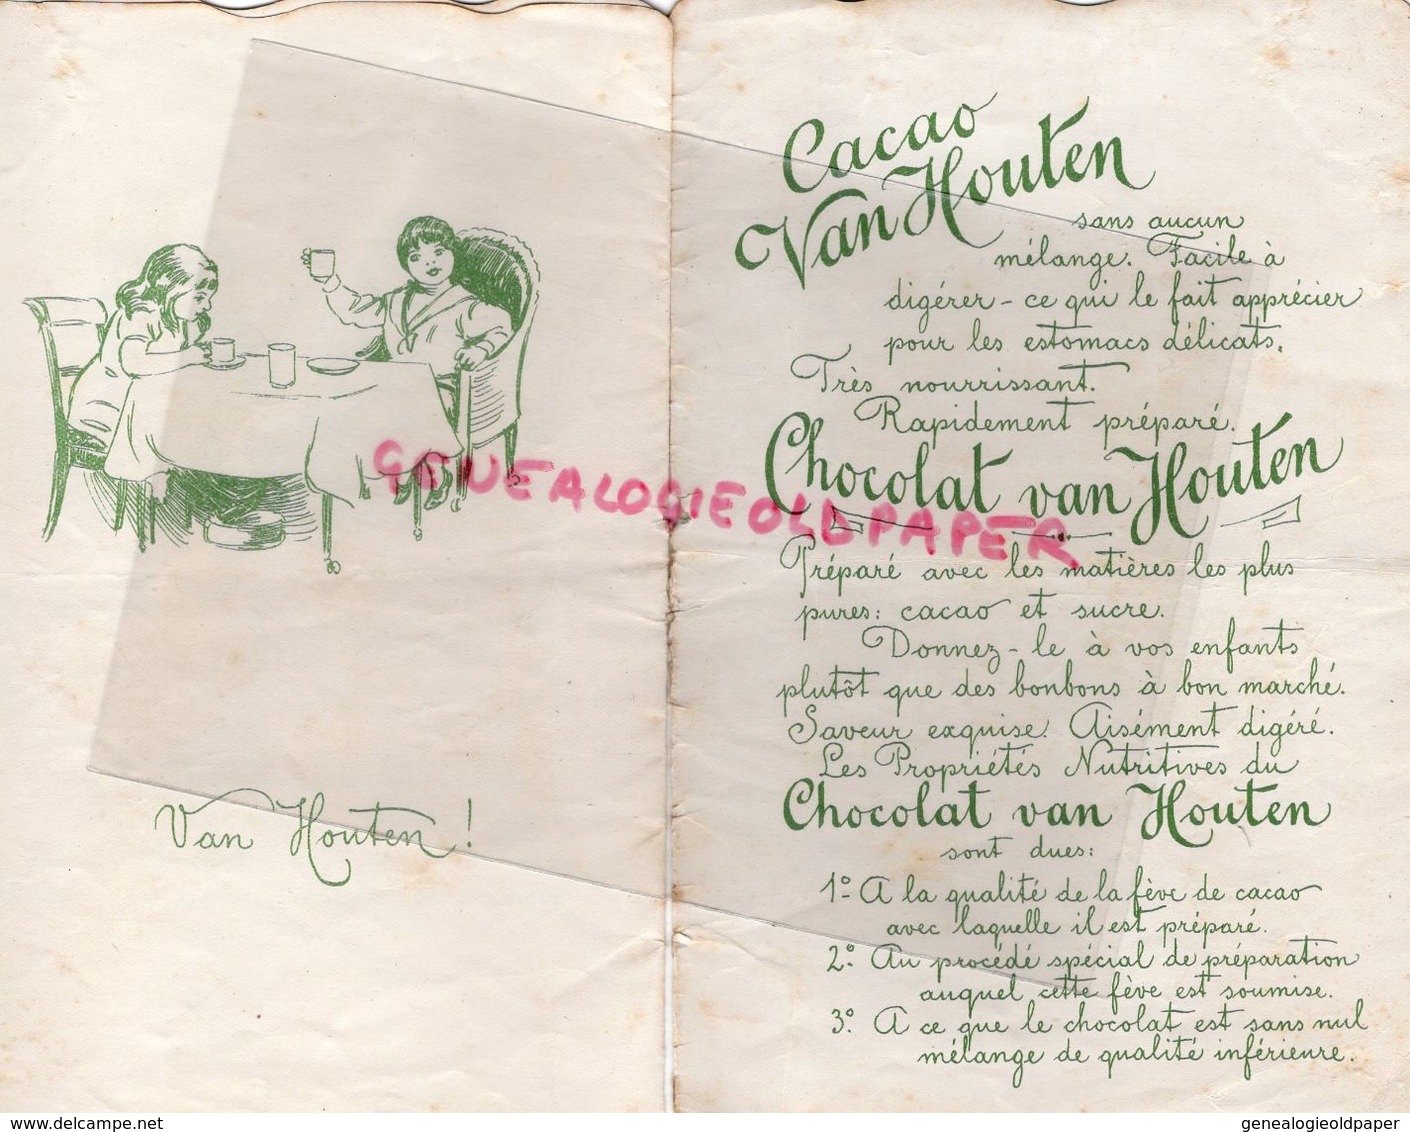 Van Houten!
Cacao
Van Houten
sans aucun
mélange. Facile à
digérer - ce qui le fait apprécier
pour les estomacs délicats.
Très nourrissant.
Rapidement préparé.
Chocolat van Houten
Préparé avec les matières les plus
pures: cacao et sucre.
Donnez-le à vos enfants
plutôt que des bonbons à bon marché.
Saveur exquise. Aisément digéré.
Les Propriétés Nutritives du
Chocolat van Houten
sont dues:
1º A la qualité de la fève de cacao
avec laquelle il est préparé.
2º Au procédé spécial de préparation
auquel cette fève est soumise.
3º A ce que le chocolat est sans nul
mélange de qualité inférieure.
GENEALOGIEOLDPAPER
genealogieoldpaper